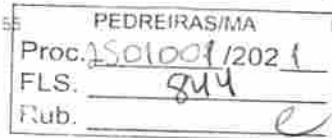 PEDREIRAS/MA
Proc. 2501001/2021
FLS. 844
Rub.